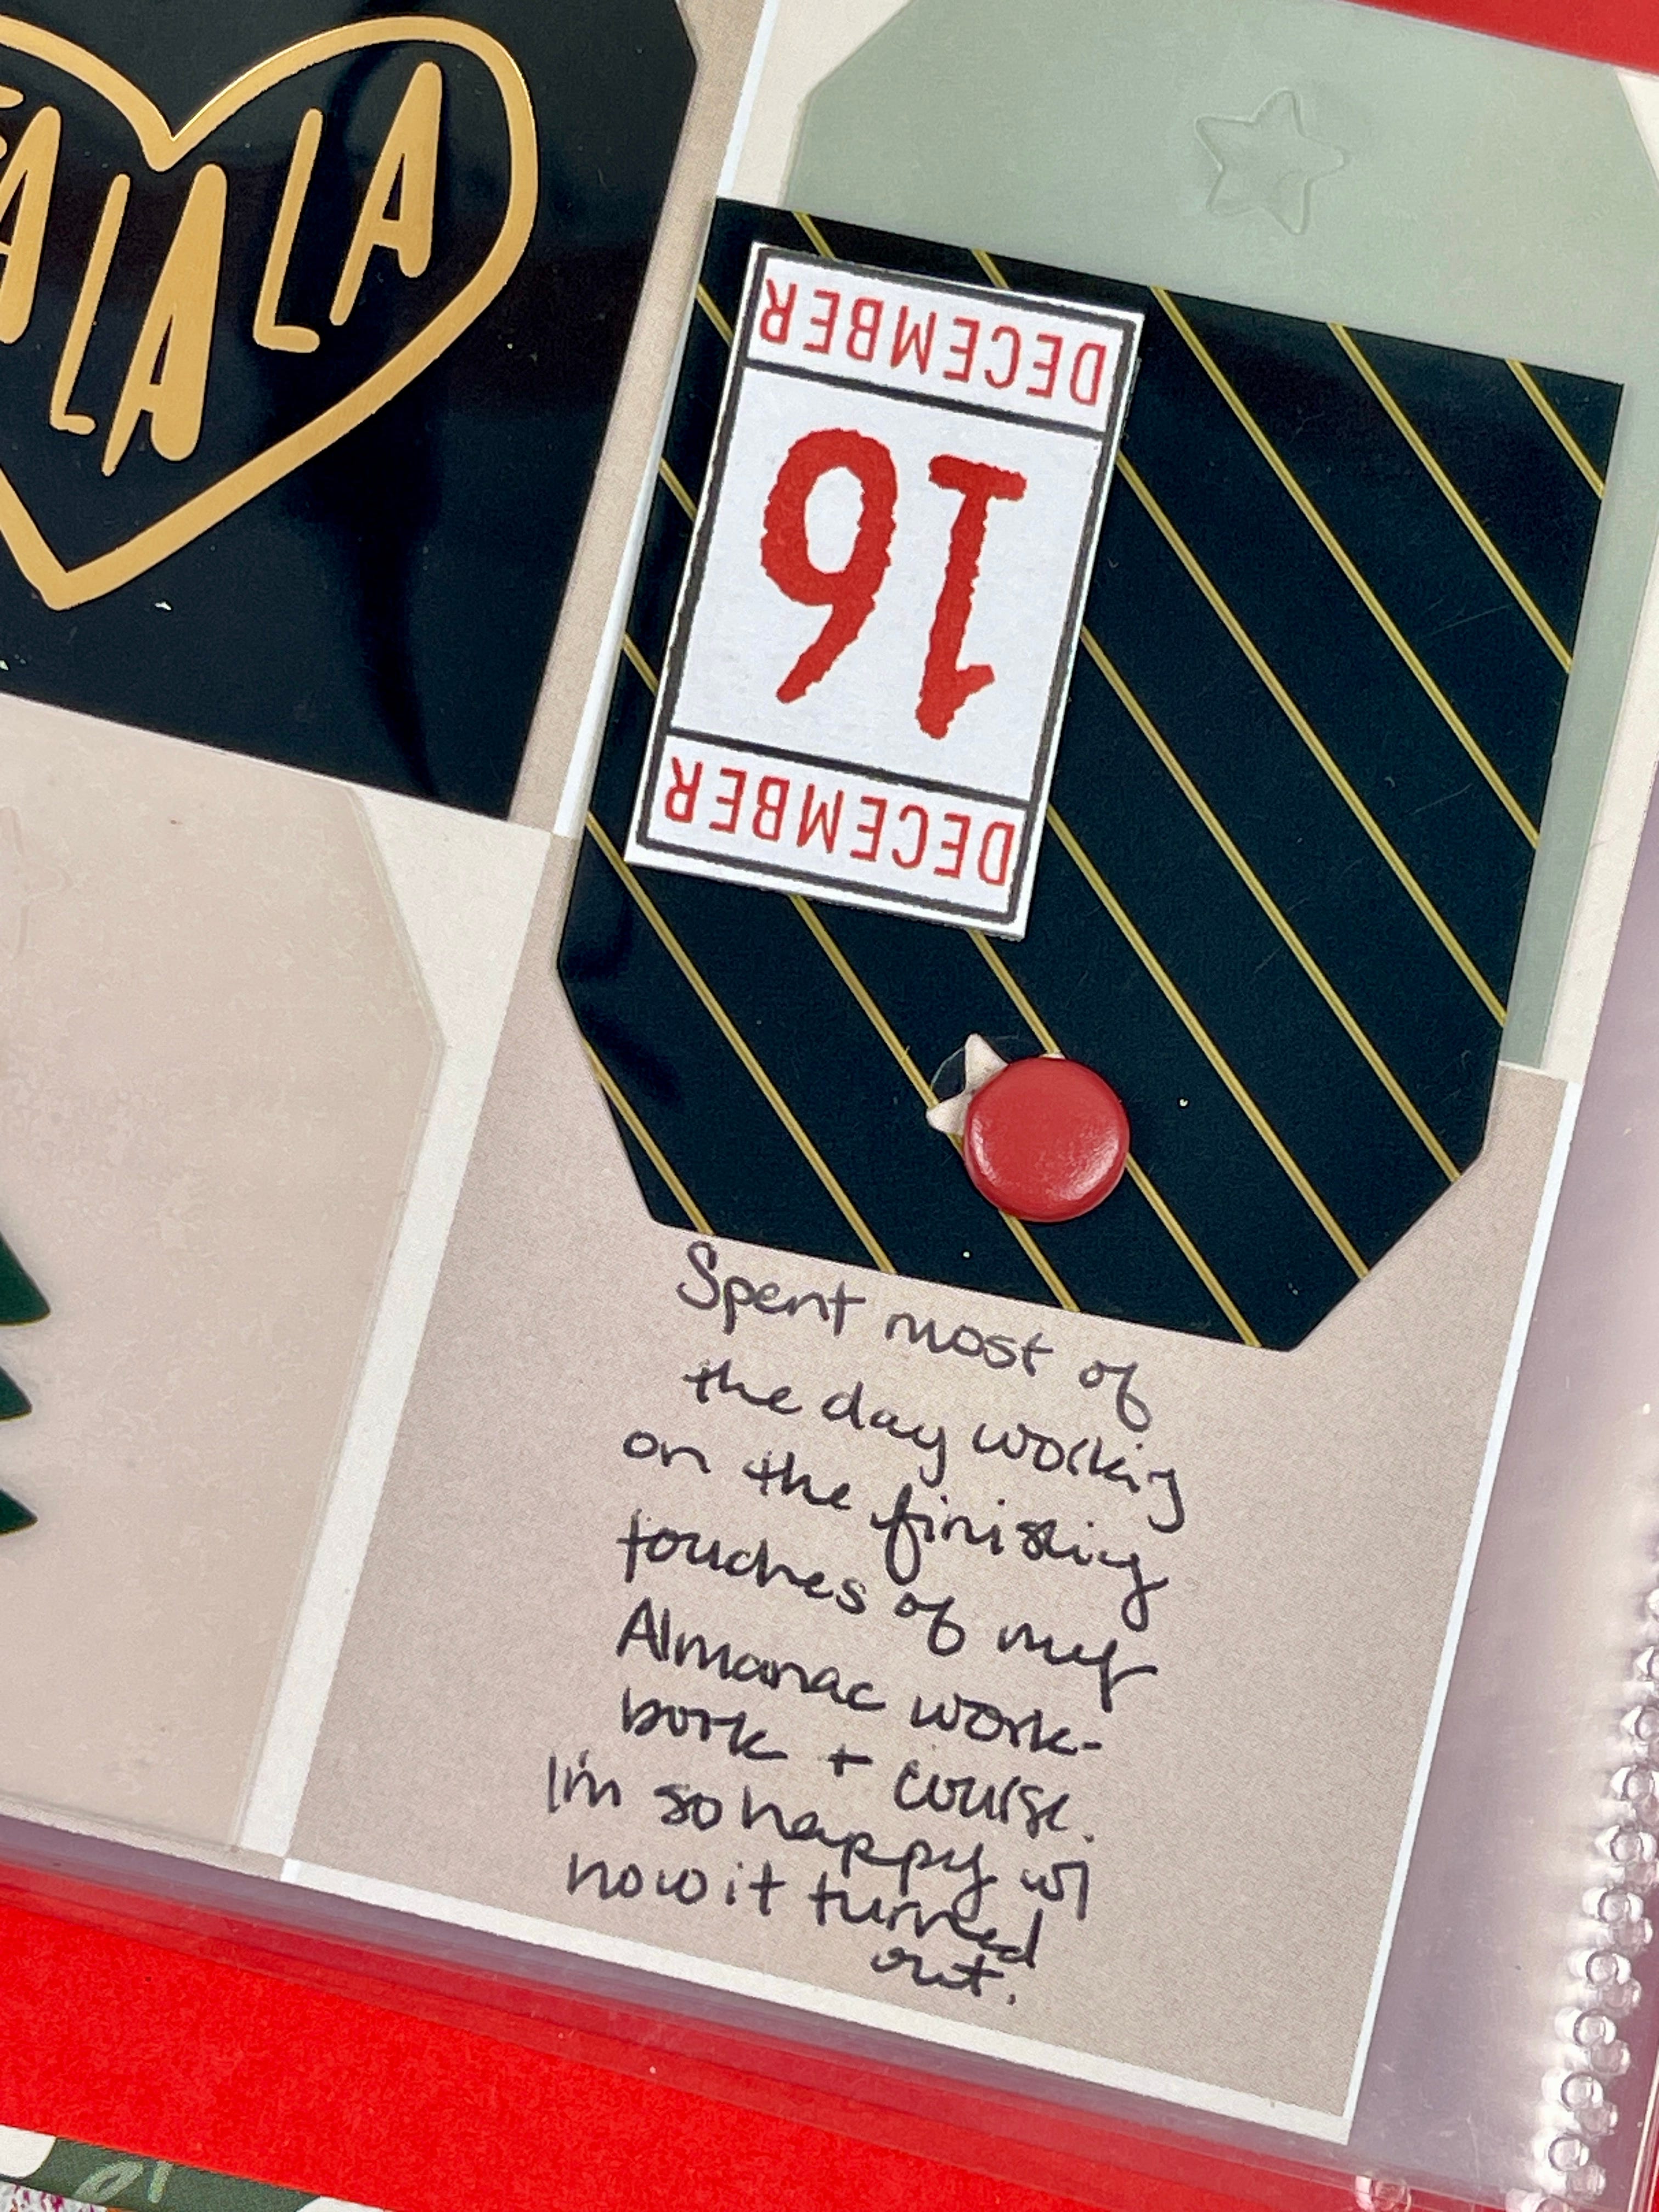 FA
LA LA LA
DECEMBER
16
DECEMBER
Spent most of
the day working
on the finishing
touches of my
Almanac work-
book + course.
I'm so happy w/
how it turned
out.